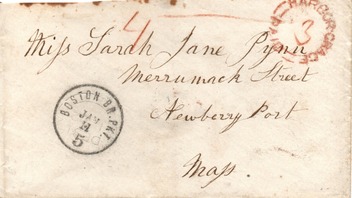 4
PAID HARBOR GRACE
3
Miss Sarah Jane Pynn
Merrumack Street
Newberry Port
Mass.
BOSTON BR. PKT.
JAN
5